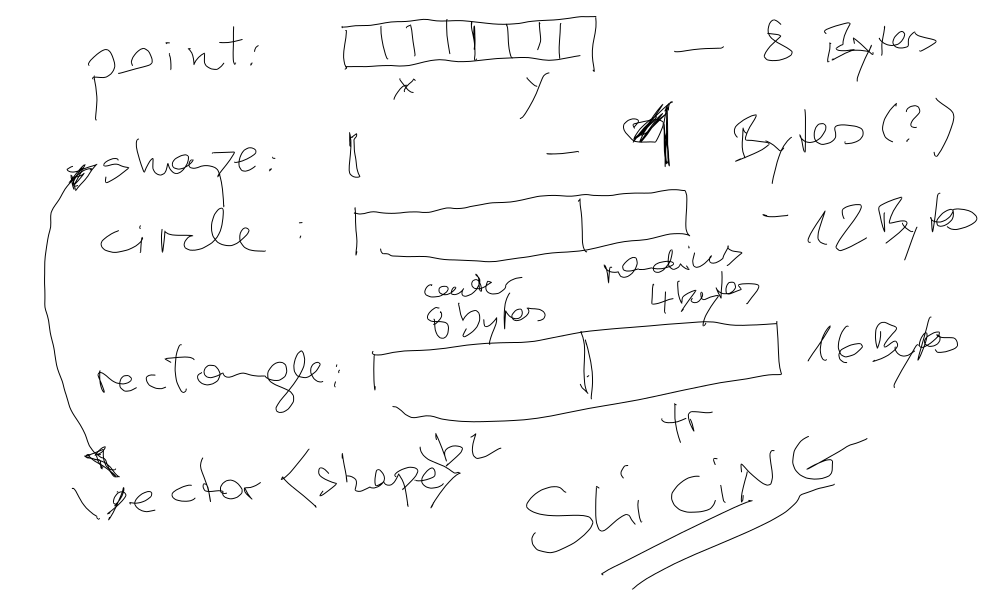 point: — 8 Bytes
x y
shape: – 1 Bytes (?)
circle : – 12 Bytes
center radius
8 bytes 4 bytes
rectangle: 16 Bytes
bl tr
vector <shape>
SLICING